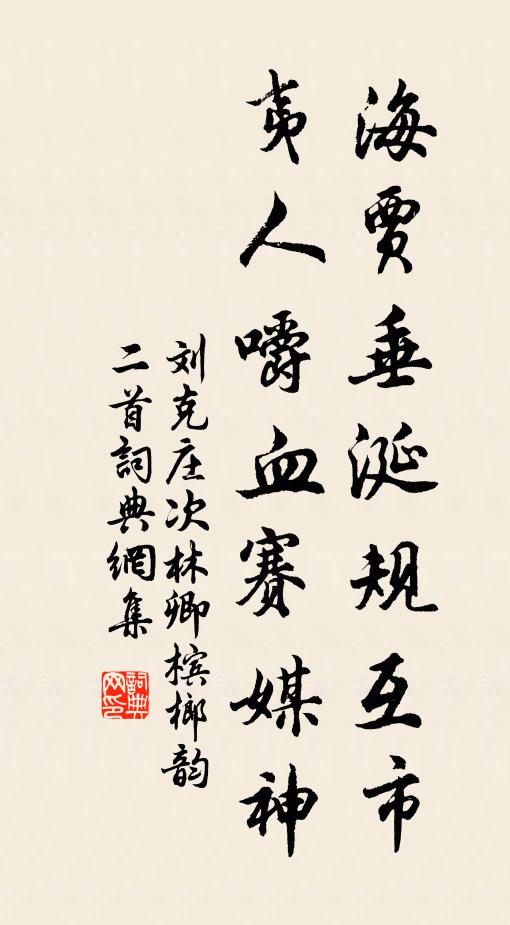 海贾垂涎规互市
夷人嚼血赛媒神
刘克庄次林卿槟榔韵
二首詞典網集
詞典
网印